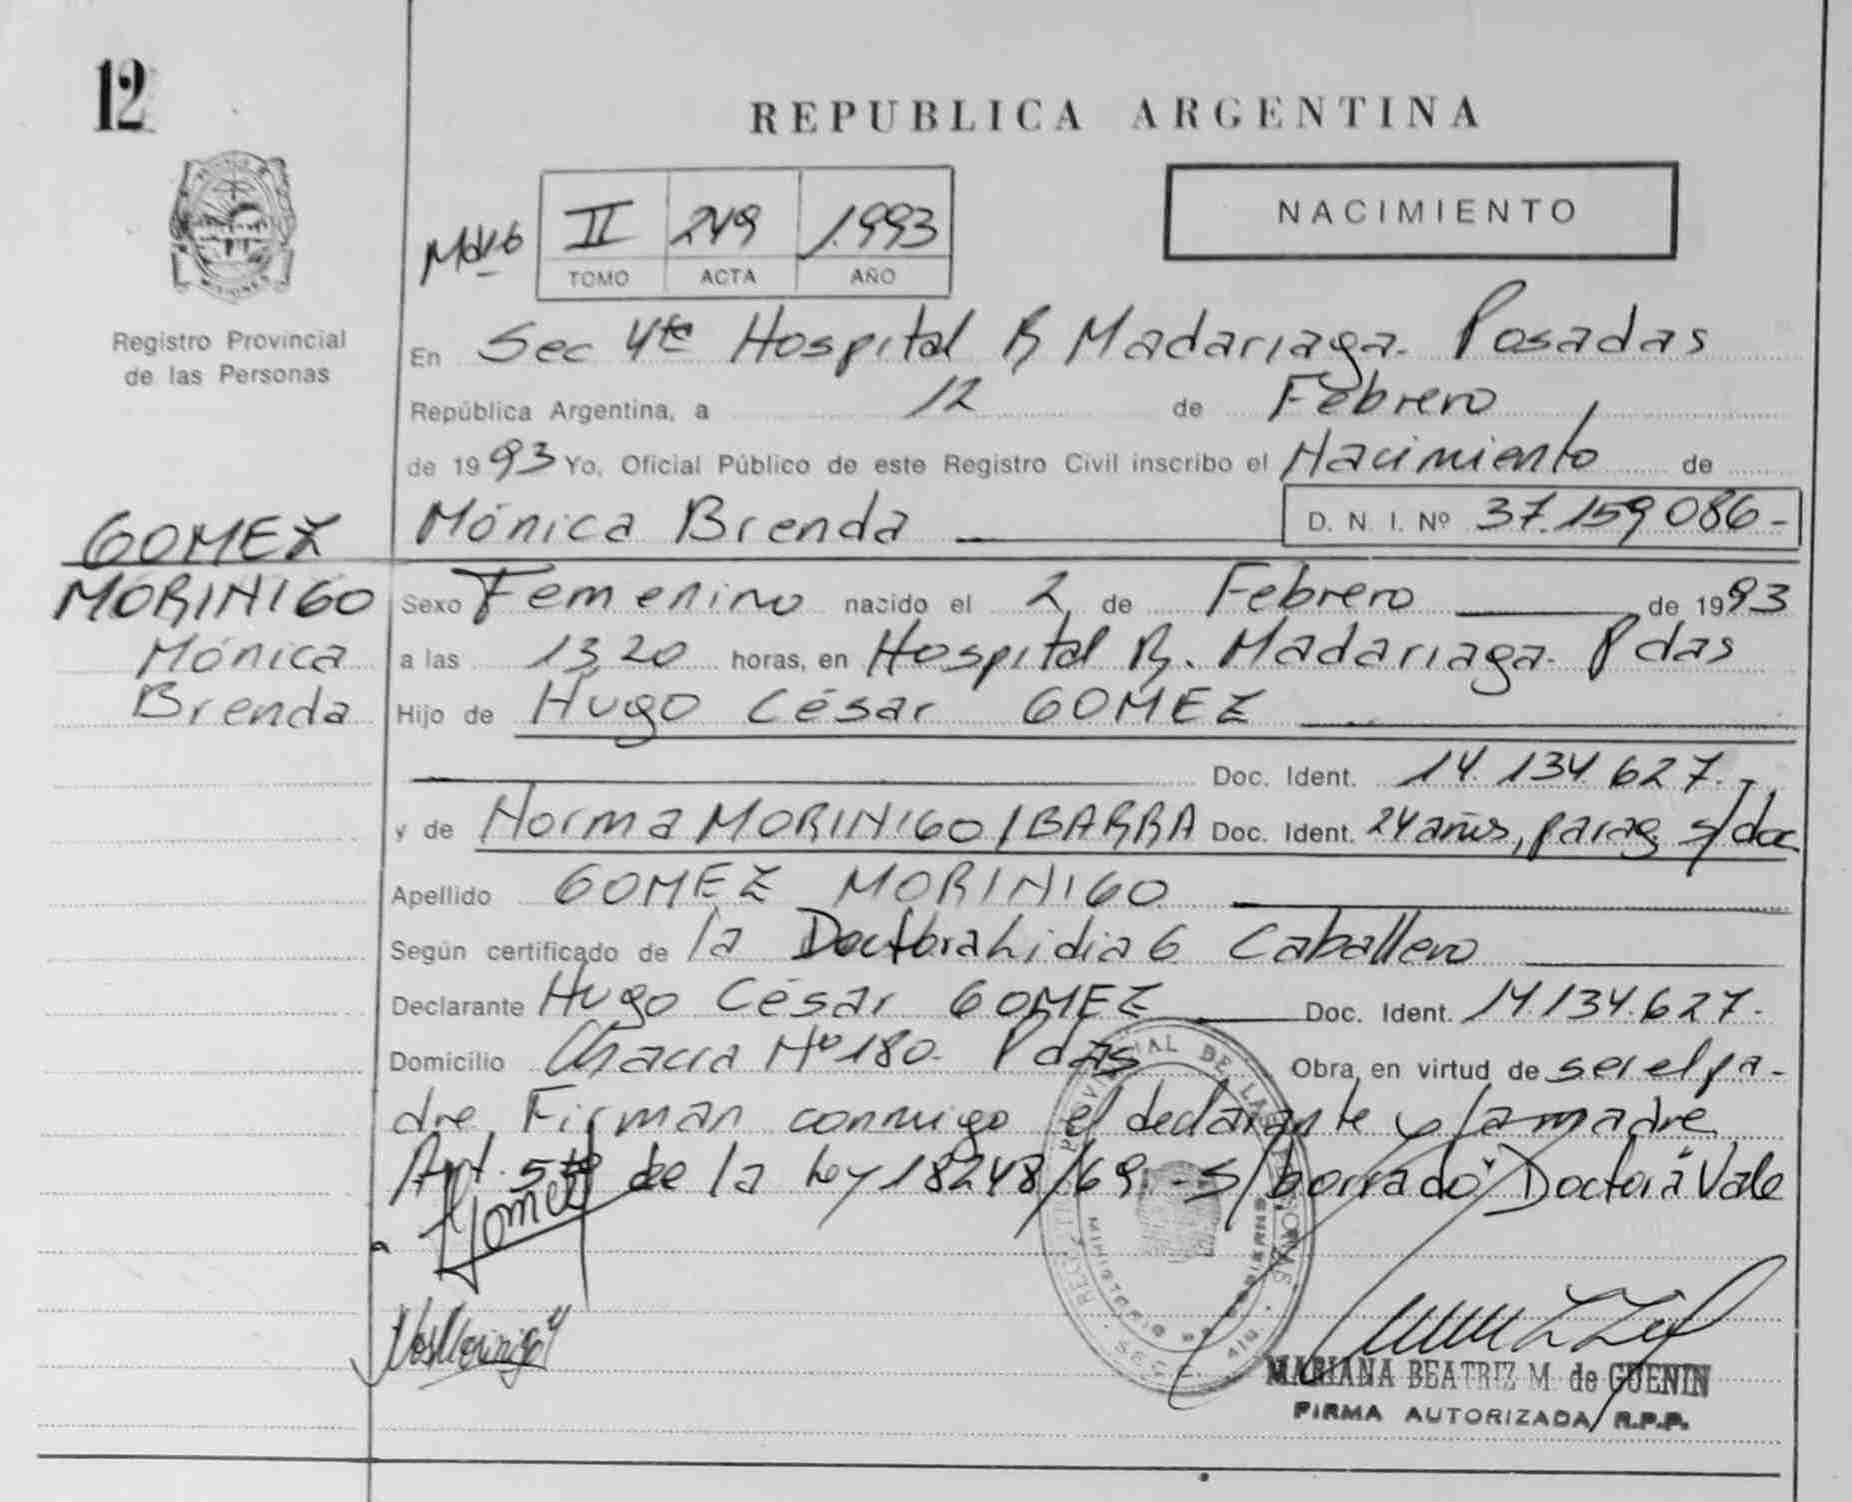 12
REPUBLICA ARGENTINA
NACIMIENTO
II 249 1.993
TOMO ACTA AÑO
Registro Provincial
de las Personas
En Sec 4ta Hospital R Madariaga. Posadas
República Argentina, a 12 de Febrero
de 1993 Yo, Oficial Público de este Registro Civil inscribo el Nacimiento de
Mónica Brenda D. N. I. Nº 37.159.086-
GOMEZ
MORINIGO
Mónica
Brenda
Sexo Femenino nacido el 2 de Febrero de 1993
a las 13,20 horas, en Hospital R. Madariaga- Pdas
Hijo de Hugo César GOMEZ
Doc. Ident. 14.134.627.-
y de Norma MORINIGO IBARRA Doc. Ident. 24 años, parag s/doc
Apellido GOMEZ MORINIGO
Según certificado de la Doctora Lidia G Caballero
Declarante Hugo César GOMEZ Doc. Ident. 14.134.627-
Domicilio Chacra Nº 180. Pdas Obra en virtud de ser el pa-
dre. Firman conmigo el declarante y la madre
Art. 5to de la Ley 18248/69.- S/borrado "Doctora" Vale
Gomez
MINISTERIO DE GOBIERNO
MARIANA BEATRIZ M. de GUENIN
FIRMA AUTORIZADA R.P.P.